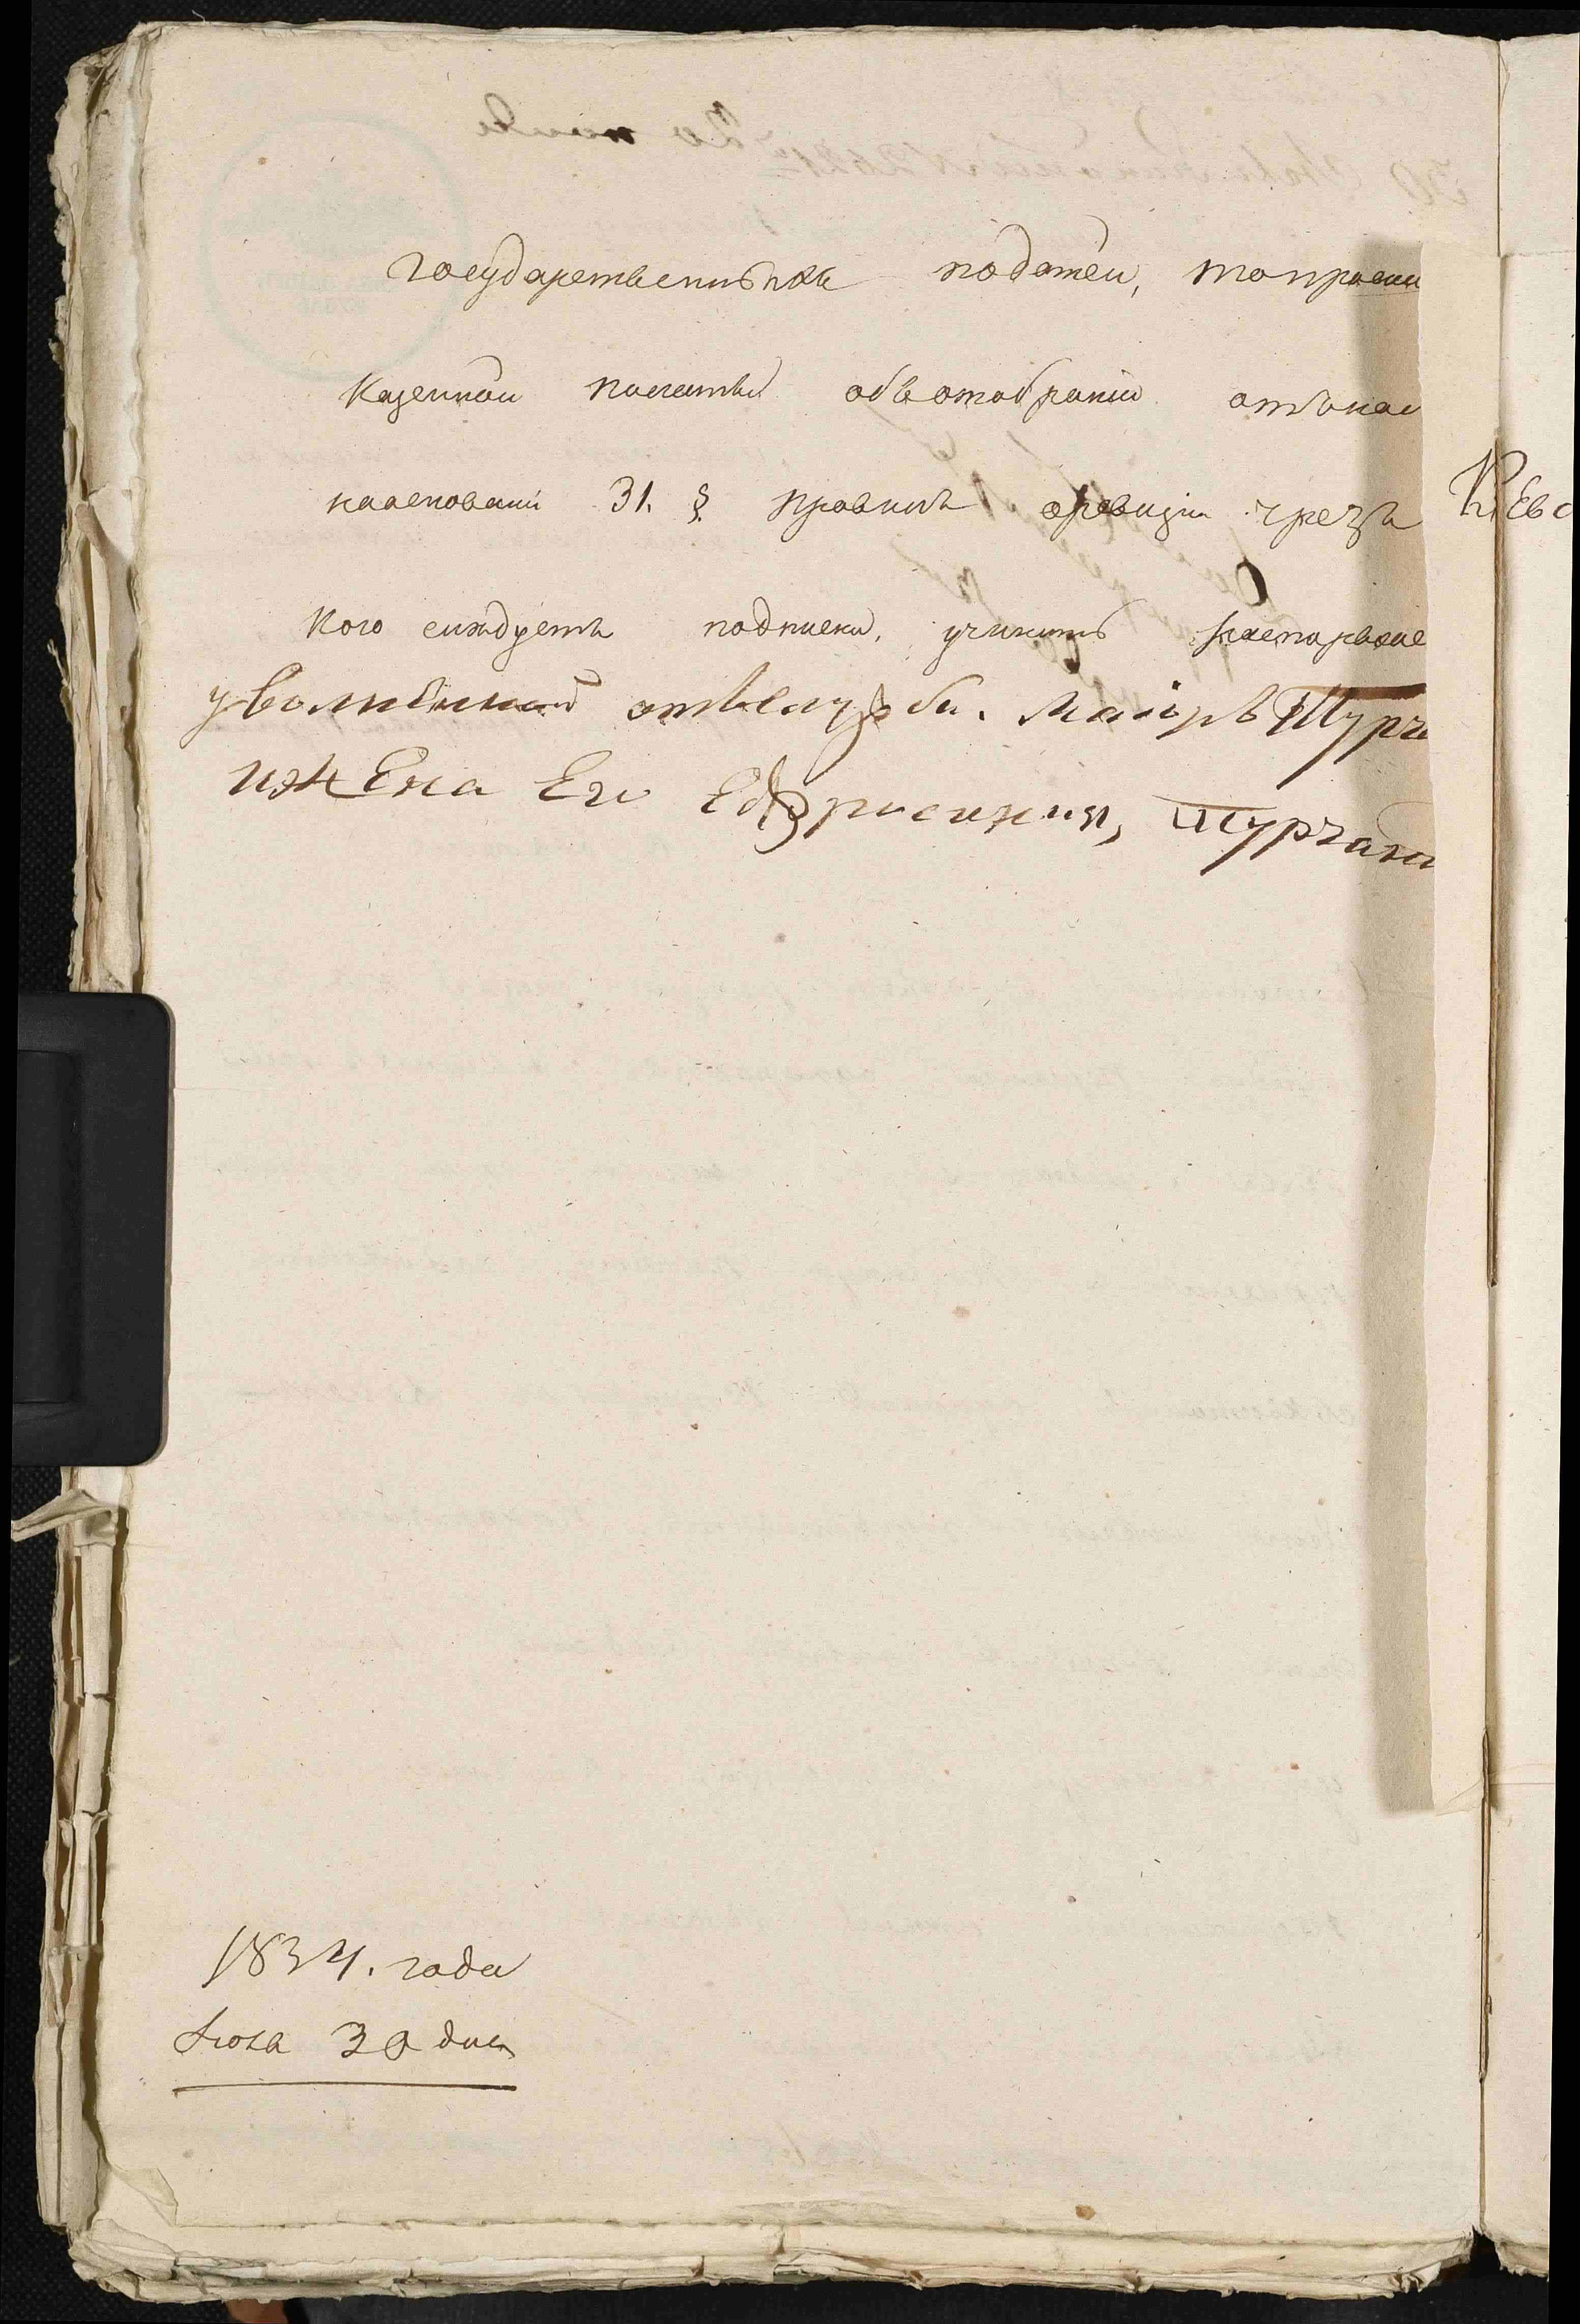 государственныхъ податей, то просим
Казенной палатый объ отобрании отъ нас
на основании 31. § правилъ о ревизии чрезъ
кого слждуетъ подписки, учинить распоряжие
уволнѣнной отъ службы. Маiоръ Турча
и жена Его Ефросиния, Турчан
1834. года
Июля 30 дня